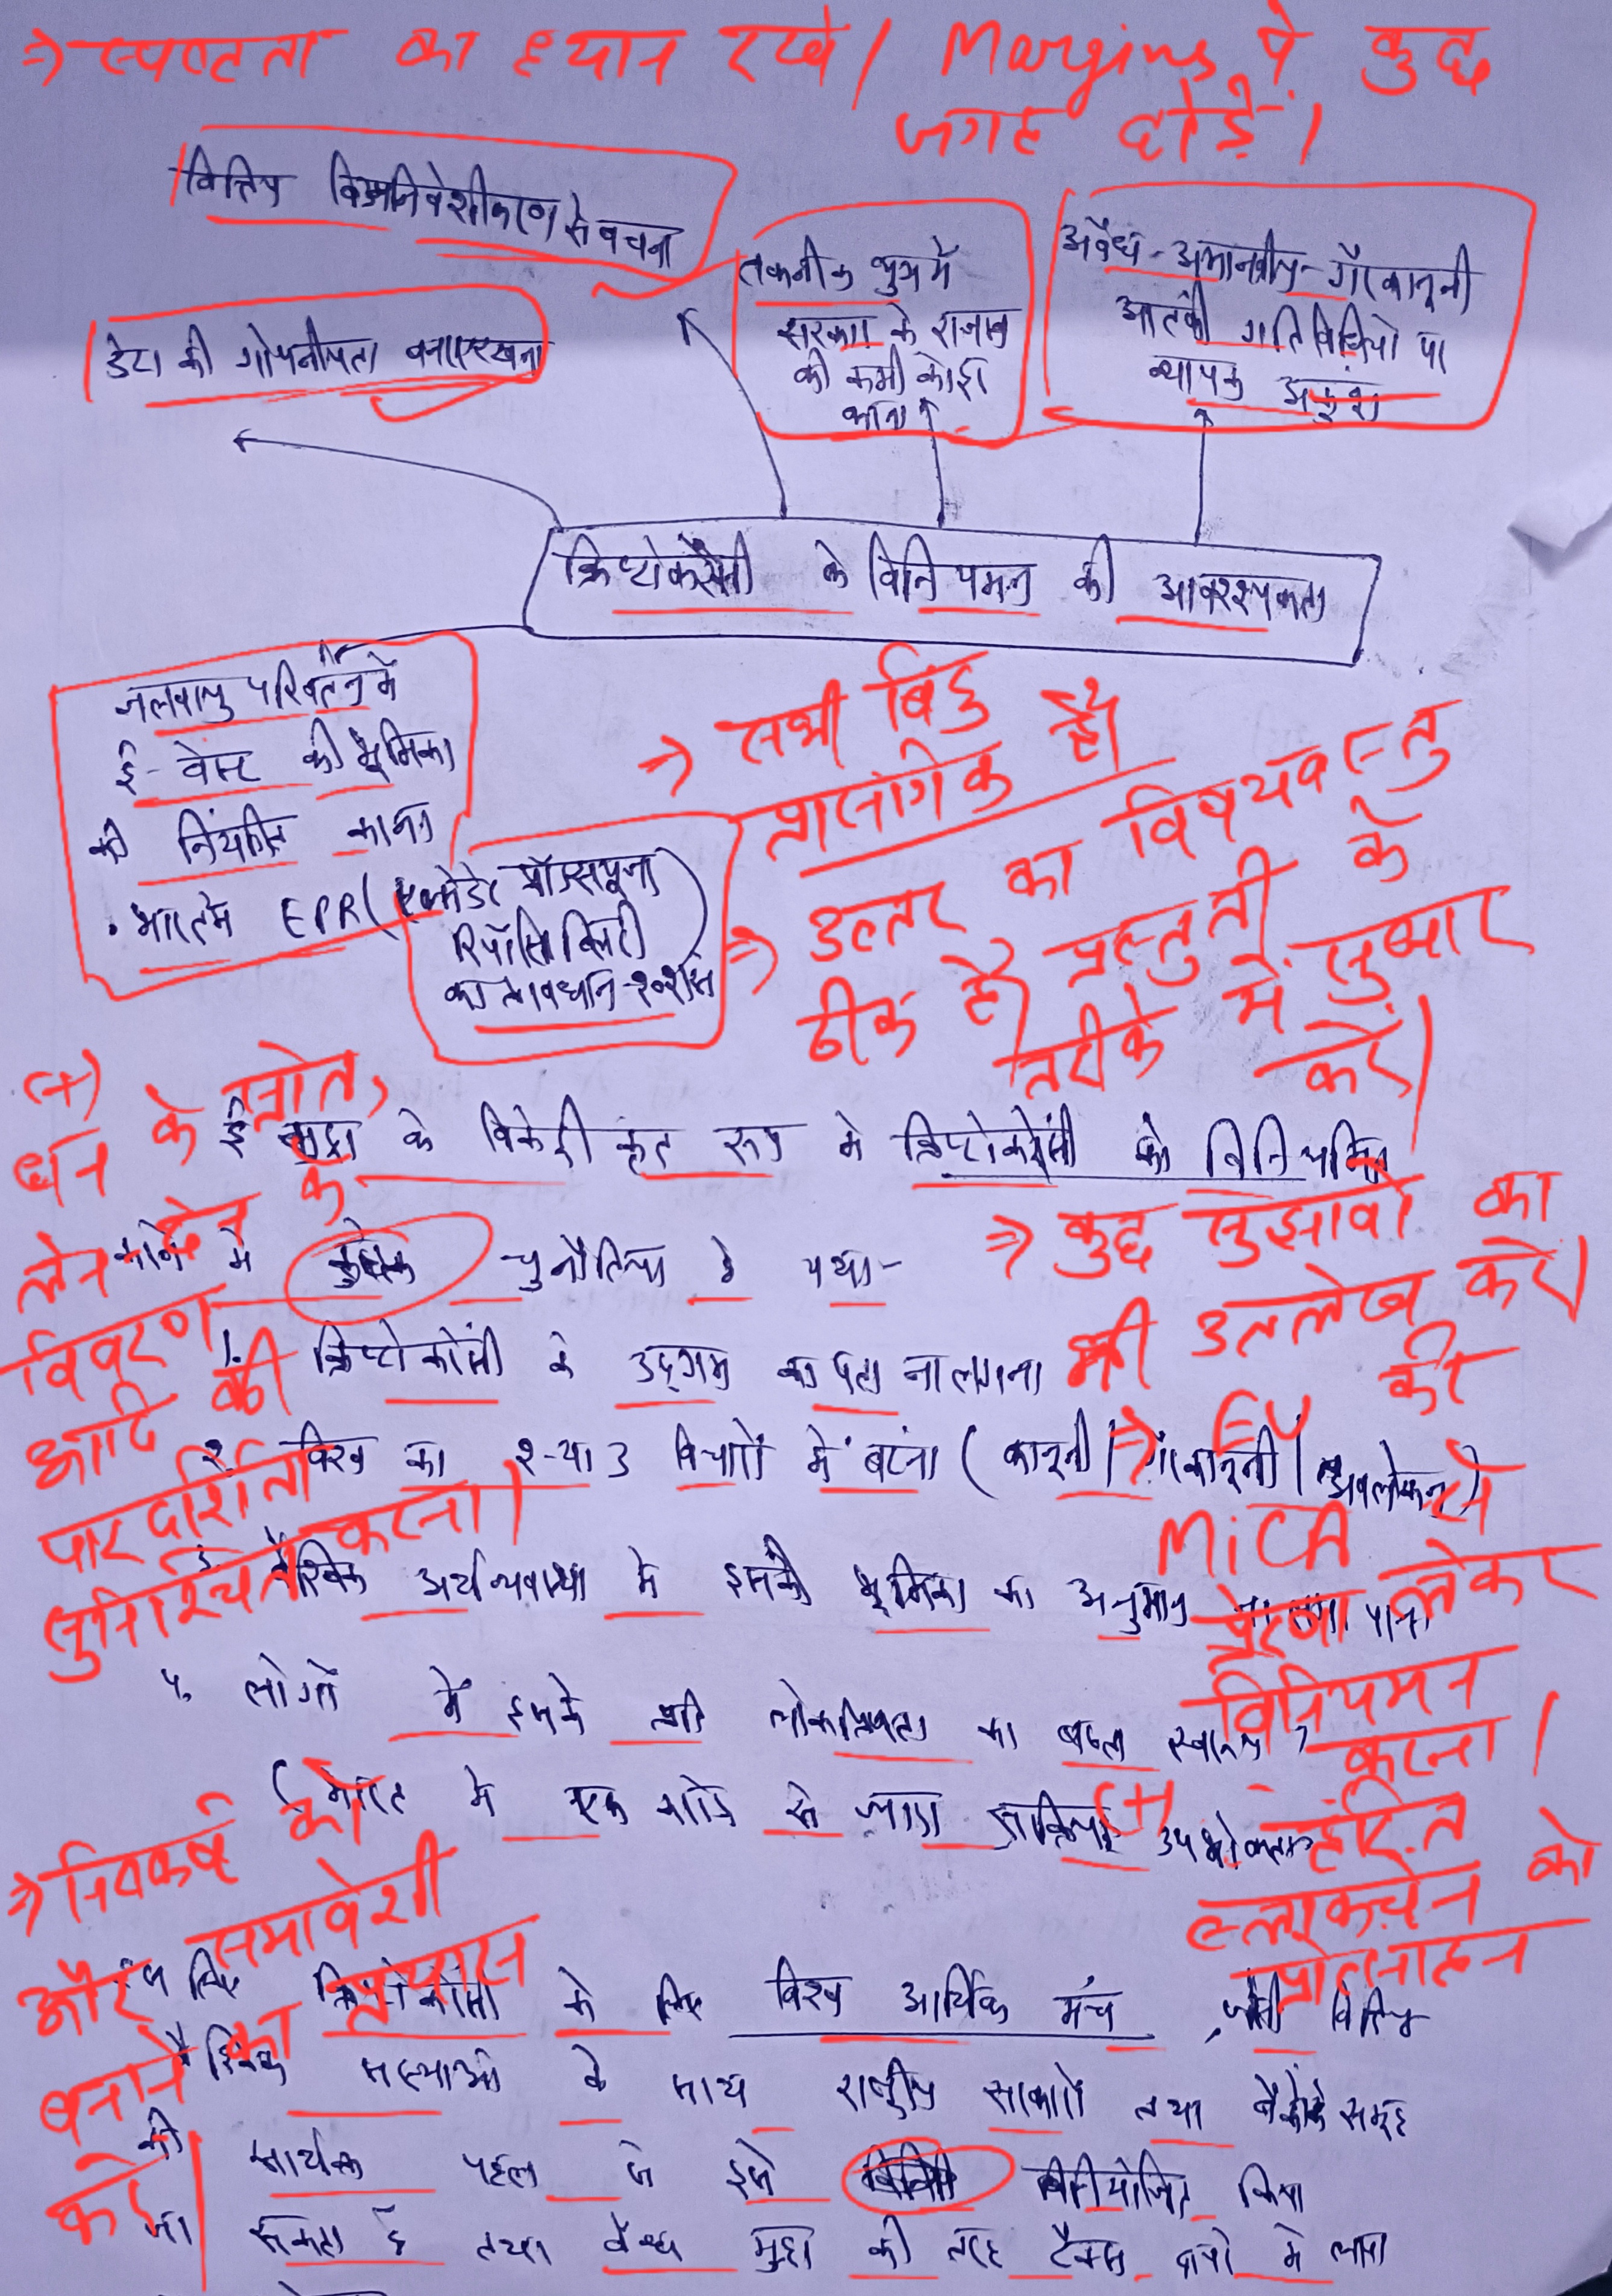 ⇒ स्पष्टता का ध्यान रखे। Margins पे कुछ
जगह छोड़े।
वित्तिय विऔपनिवेशीकरण से बचना
तकनीक युग में
सरकार के राजस्व
की कमी को दूर
करना
अवैध - अमानवीय - गैरकानूनी
आतंकी गतिविधियो पर
व्यापक अंकुश
डेटा की गोपनीयता बनाए रखना
क्रिप्टोकरेंसी के विनियमन की आवश्यकता
जलवायु परिवर्तन में
ई-वेस्ट की भूमिका
को नियंत्रित करना
• भारत में EPR (एक्सटेंडेड प्रोड्यूसर
रिस्पॉन्सिबिलिटी)
का प्रावधान-
⇒ सभी बिंदु
प्रासंगिक है।
⇒ उत्तर का विषयवस्तु
ठीक है। प्रस्तुती के
तरीके में सुधार
करें।
(+)
धन के स्रोत,
लेन देन के
विवरण
आदि की
पारदर्शिता
सुनिश्चित करना।
ई मुद्रा के विकेंद्रीकृत रूप में क्रिप्टोकरेंसी को विनियमित
करने में कुछेक चुनौतियां है यथा-
⇒ कुछ सुझावों का
भी उल्लेख करें।
1. क्रिप्टोकरेंसी के उद्गम का पता ना लगना
2. विश्व का २-या 3 विचारों में बंटना (कानूनी / गैरकानूनी / अवलोकन)
⇒ EU की
MiCA से
प्रेरणा लेकर
विनियमन
करना।
3. वैश्विक अर्थव्यवस्था में इसकी भूमिका का अनुमान ना लगा पाना
4. लोगों में इसके प्रति लोकप्रियता का बढ़ता स्वरूप,
(भारत में एक करोड़ से ज्यादा सक्रिय उपभोक्ता)
(+) हरित
ब्लाकचेन को
प्रोत्साहन
⇒ निष्कर्ष को
और समावेशी
बनाने का प्रयास
करें।
इस लिए क्रिप्टोकरेंसी के लिए विश्व आर्थिक मंच जैसी वित्तिय
वैश्विक संस्थाओं के साथ राष्ट्रीय सरकारों तथा बैंकों के समूह
की सार्थक पहल से इसे विनियोजित किया
जा सकता है तथा वैध मुद्रा की तरह टैक्स दायरे में लाया